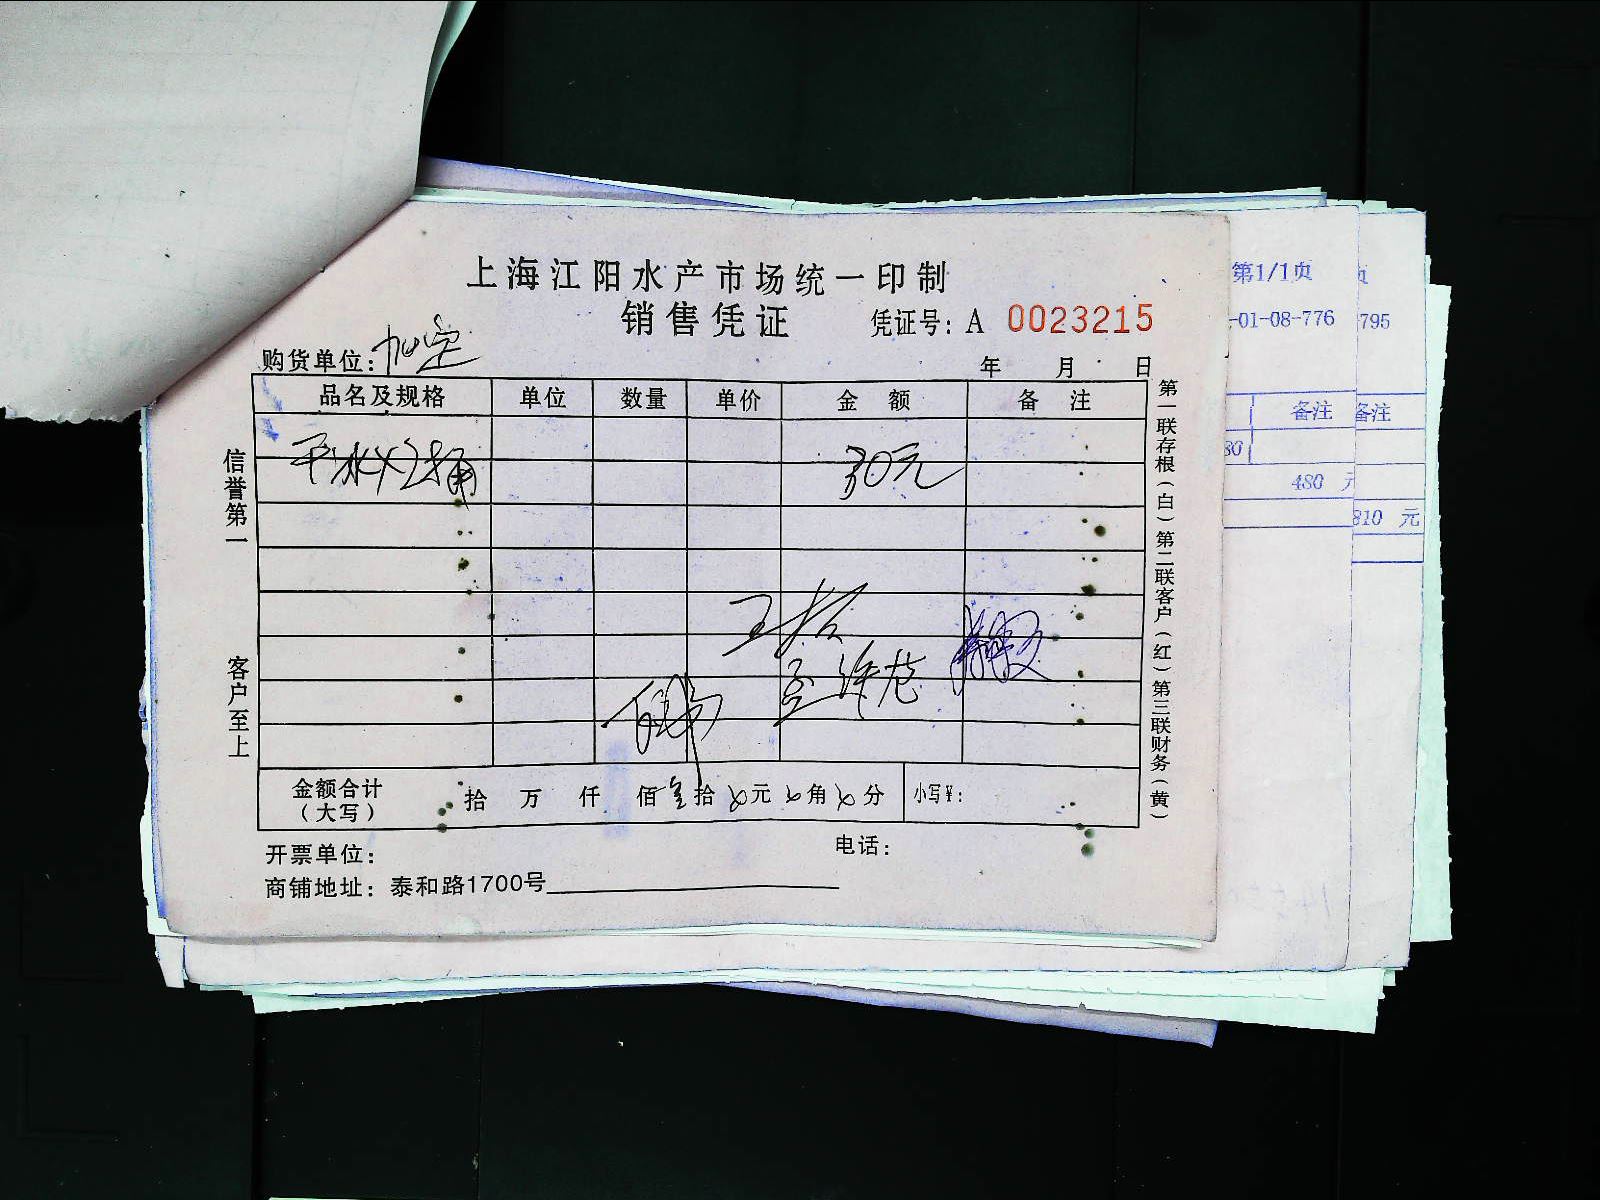 上海江阳水产市场统一印制
销售凭证 凭证号：A 0023215
购货单位：加定 年 月 日
品名及规格 单位 数量 单价 金额 备注
30元
信誉第一
客户至上
第一联存根（白）第二联客户（红）第三联财务（黄）
金额合计（大写） 拾 万 仟 佰 拾 元 角 分 小写¥：
开票单位： 电话：
商铺地址：泰和路1700号
第1/1页
-01-08-776
备注
480 元
795
备注
810 元